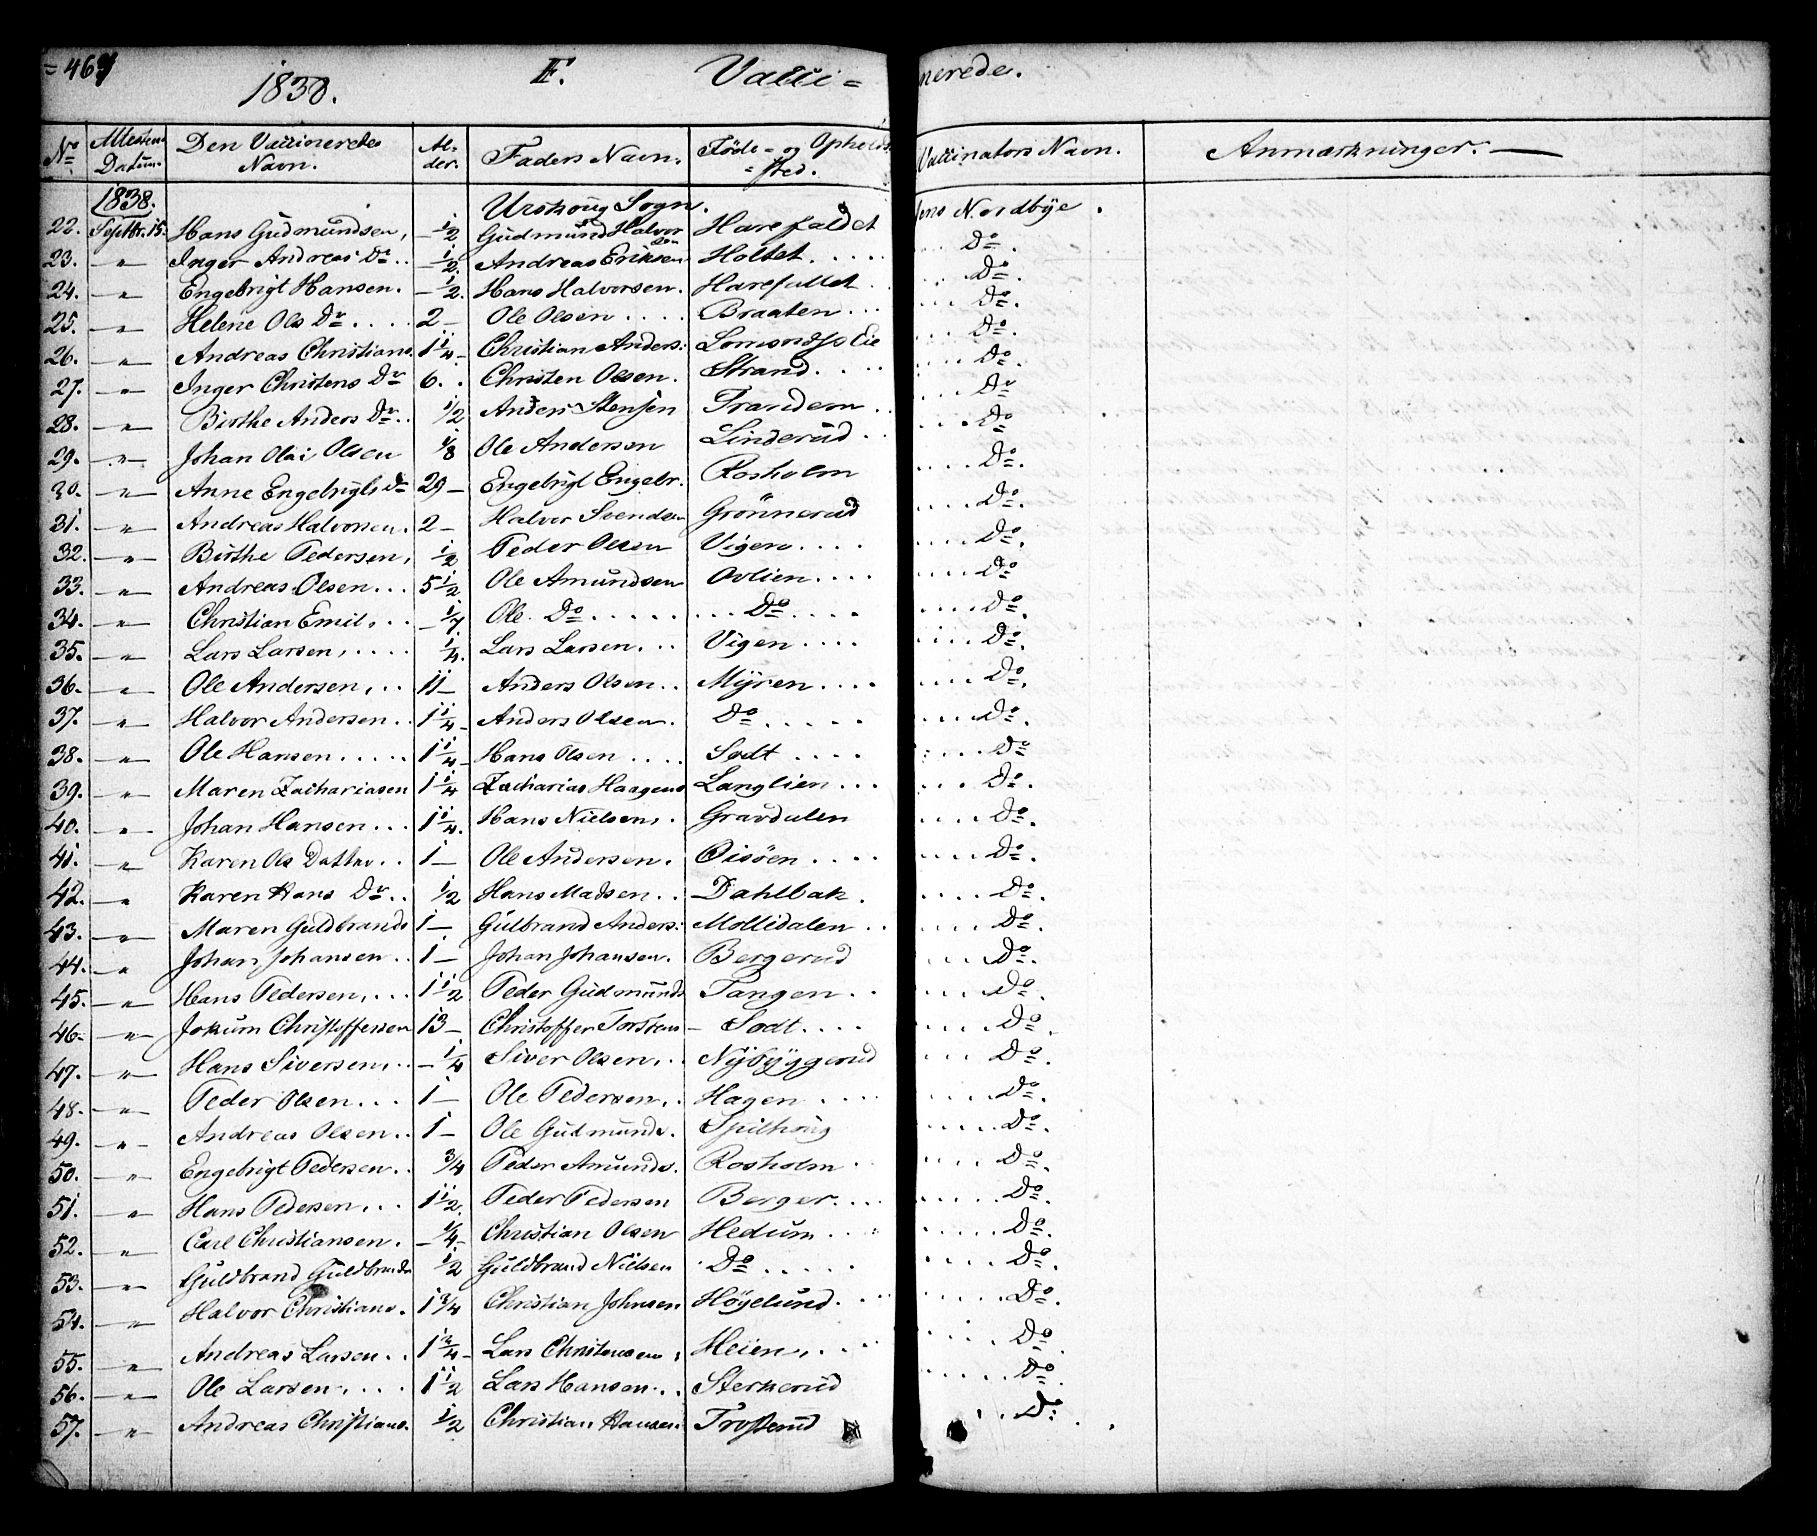 = 467
1838. F. Vacci= nerede.
No. Attestens Datum. Den Vaccineredes Navn. Al- der. Faders Navn. Føde- og Opholds =sted. Vaccinators Navn. Anmærkninger.
1838. Urskoug Sogn.
22. Septbr. 15. Hans Gudmundsen, — 1/2 Gudmund Halvorsøn Harefaldet Jens Nordbye.
23. —„— Inger Andreas Dr. — 1/2. Andreas Eriksen Holtet.... Do.
24. —„— Engebrigt Hansen. — 1/2. Hans Halvorsen. Harefallet Do.
25. —„— Helene Ols Dr.... 2 — Ole Olsen.... Braaten... Do.
26. —„— Andreas Christians. 1 1/4. Christian Anders: Lomsnæs Eie Do.
27. —„— Inger Christens Dr. 6.. Christen Olsen. Strand.... Do.
28. —„— Birthe Anders Dr.. 1/2 Anders Stensen Trandem.. Do
29. —„— Johan Olai Olsen 1/8 Ole Andersen Linderud.. Do
30. —„— Anne Engebrigts Dr 29 — Engebrigt Engebr. Rosholm Do.
31. —„— Andreas Halvorsen. 2 — Halvor Svendsen Grönnerud Do.
32. —„— Birthe Pedersen, 1/2 Peder Olsen Vigen.... Do.
33. —„— Andreas Olsen... 5 1/2 Ole Amundsen Ovlien.... Do
34. —„— Christian Emil,.. — 1/7 Ole. Do..... Do.... Do.
35. —„— Lars Larsen,.... 1/4. Lars Larsen... Vigen.... Do.
36. —„— Ole Andersen,.. 11 — Anders Olsen.. Myren.... Do.
37. —„— Halvor Andersen.. 1 1/4 Anders Olsen. Do..... Do.
38. —„— Ole Hansen..... 1 1/4 Hans Olsen.... Sodt.... Do
39. —„— Maren Zachariasen 1 1/4 Zacharias Haagens Langlien... Do.
40. —„— Johan Hansen... 1 1/4. Hans Nielsen,. Gravdalen Do.
41. —„— Karen Ols Datter.. 1 — Ole Andersen. Öisöen.... Do.
42. —„— Karen Hans Dr.. 1/2 Hans Madsen.. Dahlbak. Do.
43. —„— Maren Guldbrands 1 — Gulbrand Anders: Mollidalen.. Do.
44. —„— Johan Johansen.. 1 — Johan Johansen. Bergerud Do.
45. —„— Hans Pedersen,... 1 1/2 Peder Gudmunds Tangen.. Do.
46. —„— Jokum Christoffersen 13 — Christoffer Torstens — Sodt.... Do.
47. —„— Hans Siversen,.. — 1/4 Siver Olsen,.. Nybyggerud Do.
48. —„— Peder Olsen... 1 — Ole Pedersen,. Hagen.... Do.
49. —„— Andreas Olsen.. 1 — Ole Gudmunds. Spilhoug Do.
50. —„— Engebrigt Pedersen.. 3/4 Peder Amunds. Rosholm. Do.
51. —„— Hans Pedersen,... 1 1/2. Peder Pedersen Berger.... Do.
52. —„— Carl Christiansen. — 1/4 — Christian Olsen Hedum.... Do.
53. —„— Guldbrand Guldbrands 1/2 Guldbrand Nielsen Do..... Do.
54. —„— Halvor Christians. 1 3/4 Christian Johnsen Höyelund. Do.
55. —„— Andreas Larsen.. 1 3/4 Lars Christensen, Heien,... Do.
56. —„— Ole Larsen,.... 1 1/2 Lars Hansen... Sterkerud Do.
57. —„— Andreas Christians. 1/2 Christian Hansen. Trosterud Do.